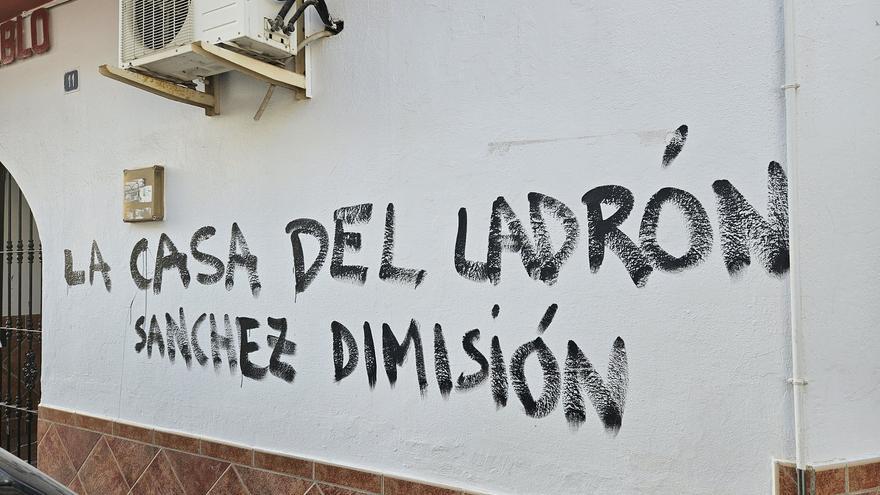 BLO
11
LA CASA DEL LADRÓN
SANCHEZ DIMISIÓN